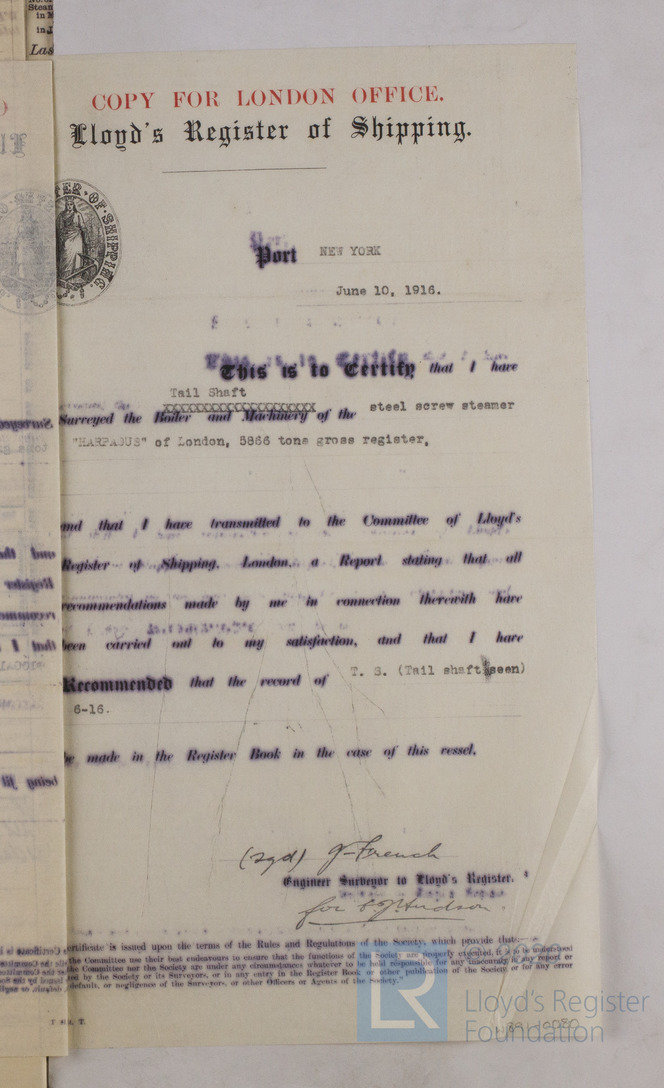 COPY FOR LONDON OFFICE.
Lloyd's Register of Shipping.
Port NEW YORK
June 10, 1916.
This is to Certify that I have
Tail Shaft
Surveyed the Boiler and Machinery of the steel screw steamer
"HARPAGUS" of London, 5866 tons gross register,
and that I have transmitted to the Committee of Lloyd's
Register of Shipping, London, a Report stating that all
recommendations made by me in connection therewith have
been carried out to my satisfaction, and that I have
Recommended that the record of T. S. (Tail shaft seen)
6-16.
be made in the Register Book in the case of this vessel.
(sgd) J French
Engineer Surveyor to Lloyd's Register.
for Hudson.
ertificate is issued upon the terms of the Rules and Regulations of the Society, which provide that:
the Committee use their best endeavours to ensure that the functions of the Society are properly executed, it is to be understood
the Committee nor the Society are under any circumstances whatever to be held responsible for any inaccuracy in any report or
ed by the Society or its Surveyors, or in any entry in the Register Book or other publication of the Society, or for any error
default, or negligence of the Surveyors, or other Officers or Agents of the Society."
Lloyd's Register
Foundation